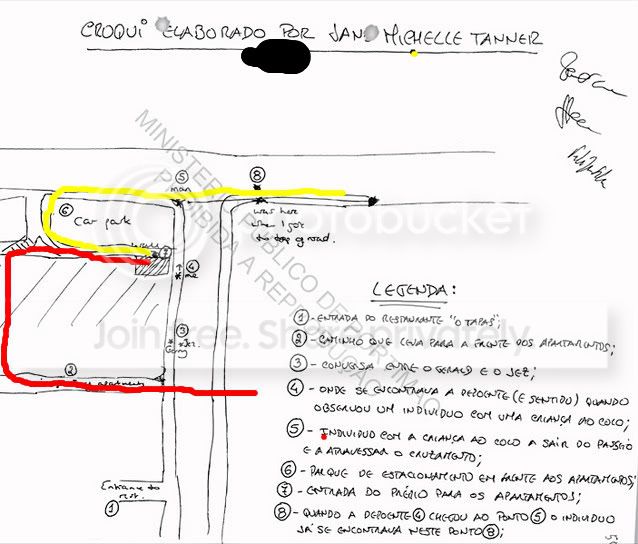 CROQUI ELABORADO POR JANE MICHELLE TANNER
MINISTÉRIO PÚBLICO DE PORTIMÃO
PROIBIDA A REPRODUÇÃO
photobucket
Join free. Share privately
5
man
8
was here
when I got
to top of road.
6
Car park
4
me
3
Jez.
Gerry
2
apartments
Entrance to
rest.
1
LEGENDA:
1 - ENTRADA DO RESTAURANTE "O TAPAS";
2 - CAMINHO QUE LEVA PARA A FRENTE DOS APARTAMENTOS;
3 - CONVERSA ENTRE O GERALD E O JEZ;
4 - ONDE SE ENCONTRAVA A DEPOENTE (E SENTIDO) QUANDO
OBSERVOU UM INDIVIDUO COM UMA CRIANÇA AO COLO;
5 - INDIVIDUO COM A CRIANÇA AO COLO A SAIR DO PASSEIO
E A ATRAVESSAR O CRUZAMENTO;
6 - PARQUE DE ESTACIONAMENTO EM FRENTE AOS APARTAMENTOS;
7 - ENTRADA DO PRÉDIO PARA OS APARTAMENTOS;
8 - QUANDO A DEPOENTE 4 CHEGOU AO PONTO 5 O INDIVIDUO
JÁ SE ENCONTRAVA NESTE PONTO 8;